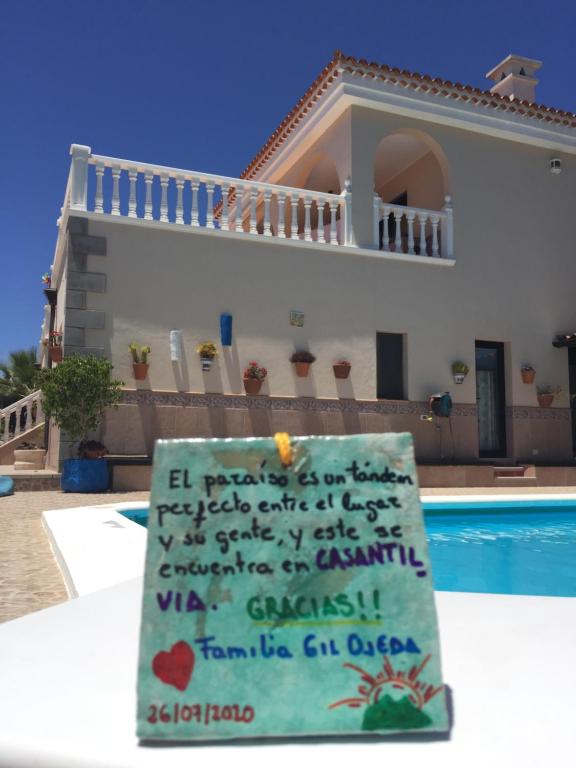 El paraíso es un tándem
perfecto entre el lugar
y su gente, y este se
encuentra en CASANTIL
VIA.
GRACIAS!!
Familia GIL OJEDA
26/07/2020